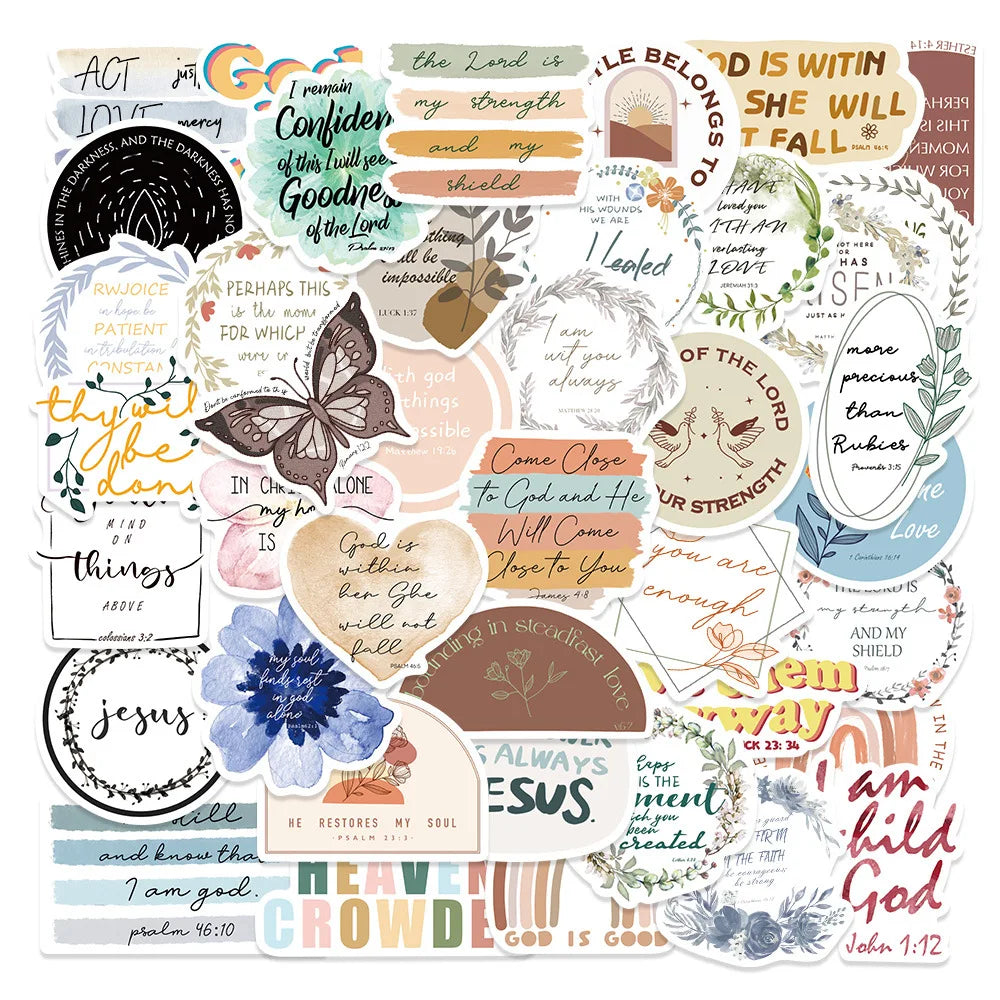 ACT just
LOVE mercy
God
I remain
Confiden
of this I will see
Goodne
of the Lord
Psalm 27:13
the Lord is
my strength
and my
shield
TLE BELONGS TO
D IS WITIN
SHE WILL
T FALL
PSALM 46:5
ESTHER 4:14
PERHA
THIS IS
MOMEN
FOR WH
YOU
CRE
HINES IN THE DARKNESS, AND THE DARKNESS HAS NO
thing
ll be
impossible
LUCK 1:37
WITH
HIS WOUNDS
WE ARE
Healed
HAVE
loved you
ITH AN
verlasting
LOVE
JEREMIAH 31:3
NOT HERE
OR
HAS
ISEN
JUST AS H
MATTH
RWJOICE
in hope be
PATIENT
in tribulation b
CONSTAN
PERHAPS THIS
is the mome
FOR WHICH
were cr
Don't be conformed to this world but be transformed
Romans 12:2
ith god
things
ossible
Matthew 19:26
I am
wit you
always
MATTHEW 28:20
OF THE LORD
UR STRENGTH
more
precious
than
Rubies
Proverbs 3:15
thy wil
be
don
IN CHRIST ALONE
my ho
IS
Come Close
to God and He
Will Come
Close to You
James 4:8
ne
Love
1 Corinthians 16:14
MIND
ON
things
ABOVE
colossians 3:2
God is
within
her She
will not
fall
PSALM 46:5
you are
enough
THE LORD IS
my strength
AND MY
SHIELD
Psalm 28:7
jesus
my soul
finds rest
in god
alone
Psalm 62:1
bounding in steadfast love
hem
way
CK 23: 34
V IN THE
HE RESTORES MY SOUL
PSALM 23:3
S ALWAYS
ESUS.
erhaps
IS THE
ment
ich you
been
created
guard
FIRM
THE FAITH
be courageous
be strong
am
hild
God
John 1:12
still
and know tha
I am god.
psalm 46:10
HEAVEN
CROWDE
GOD IS GOOD